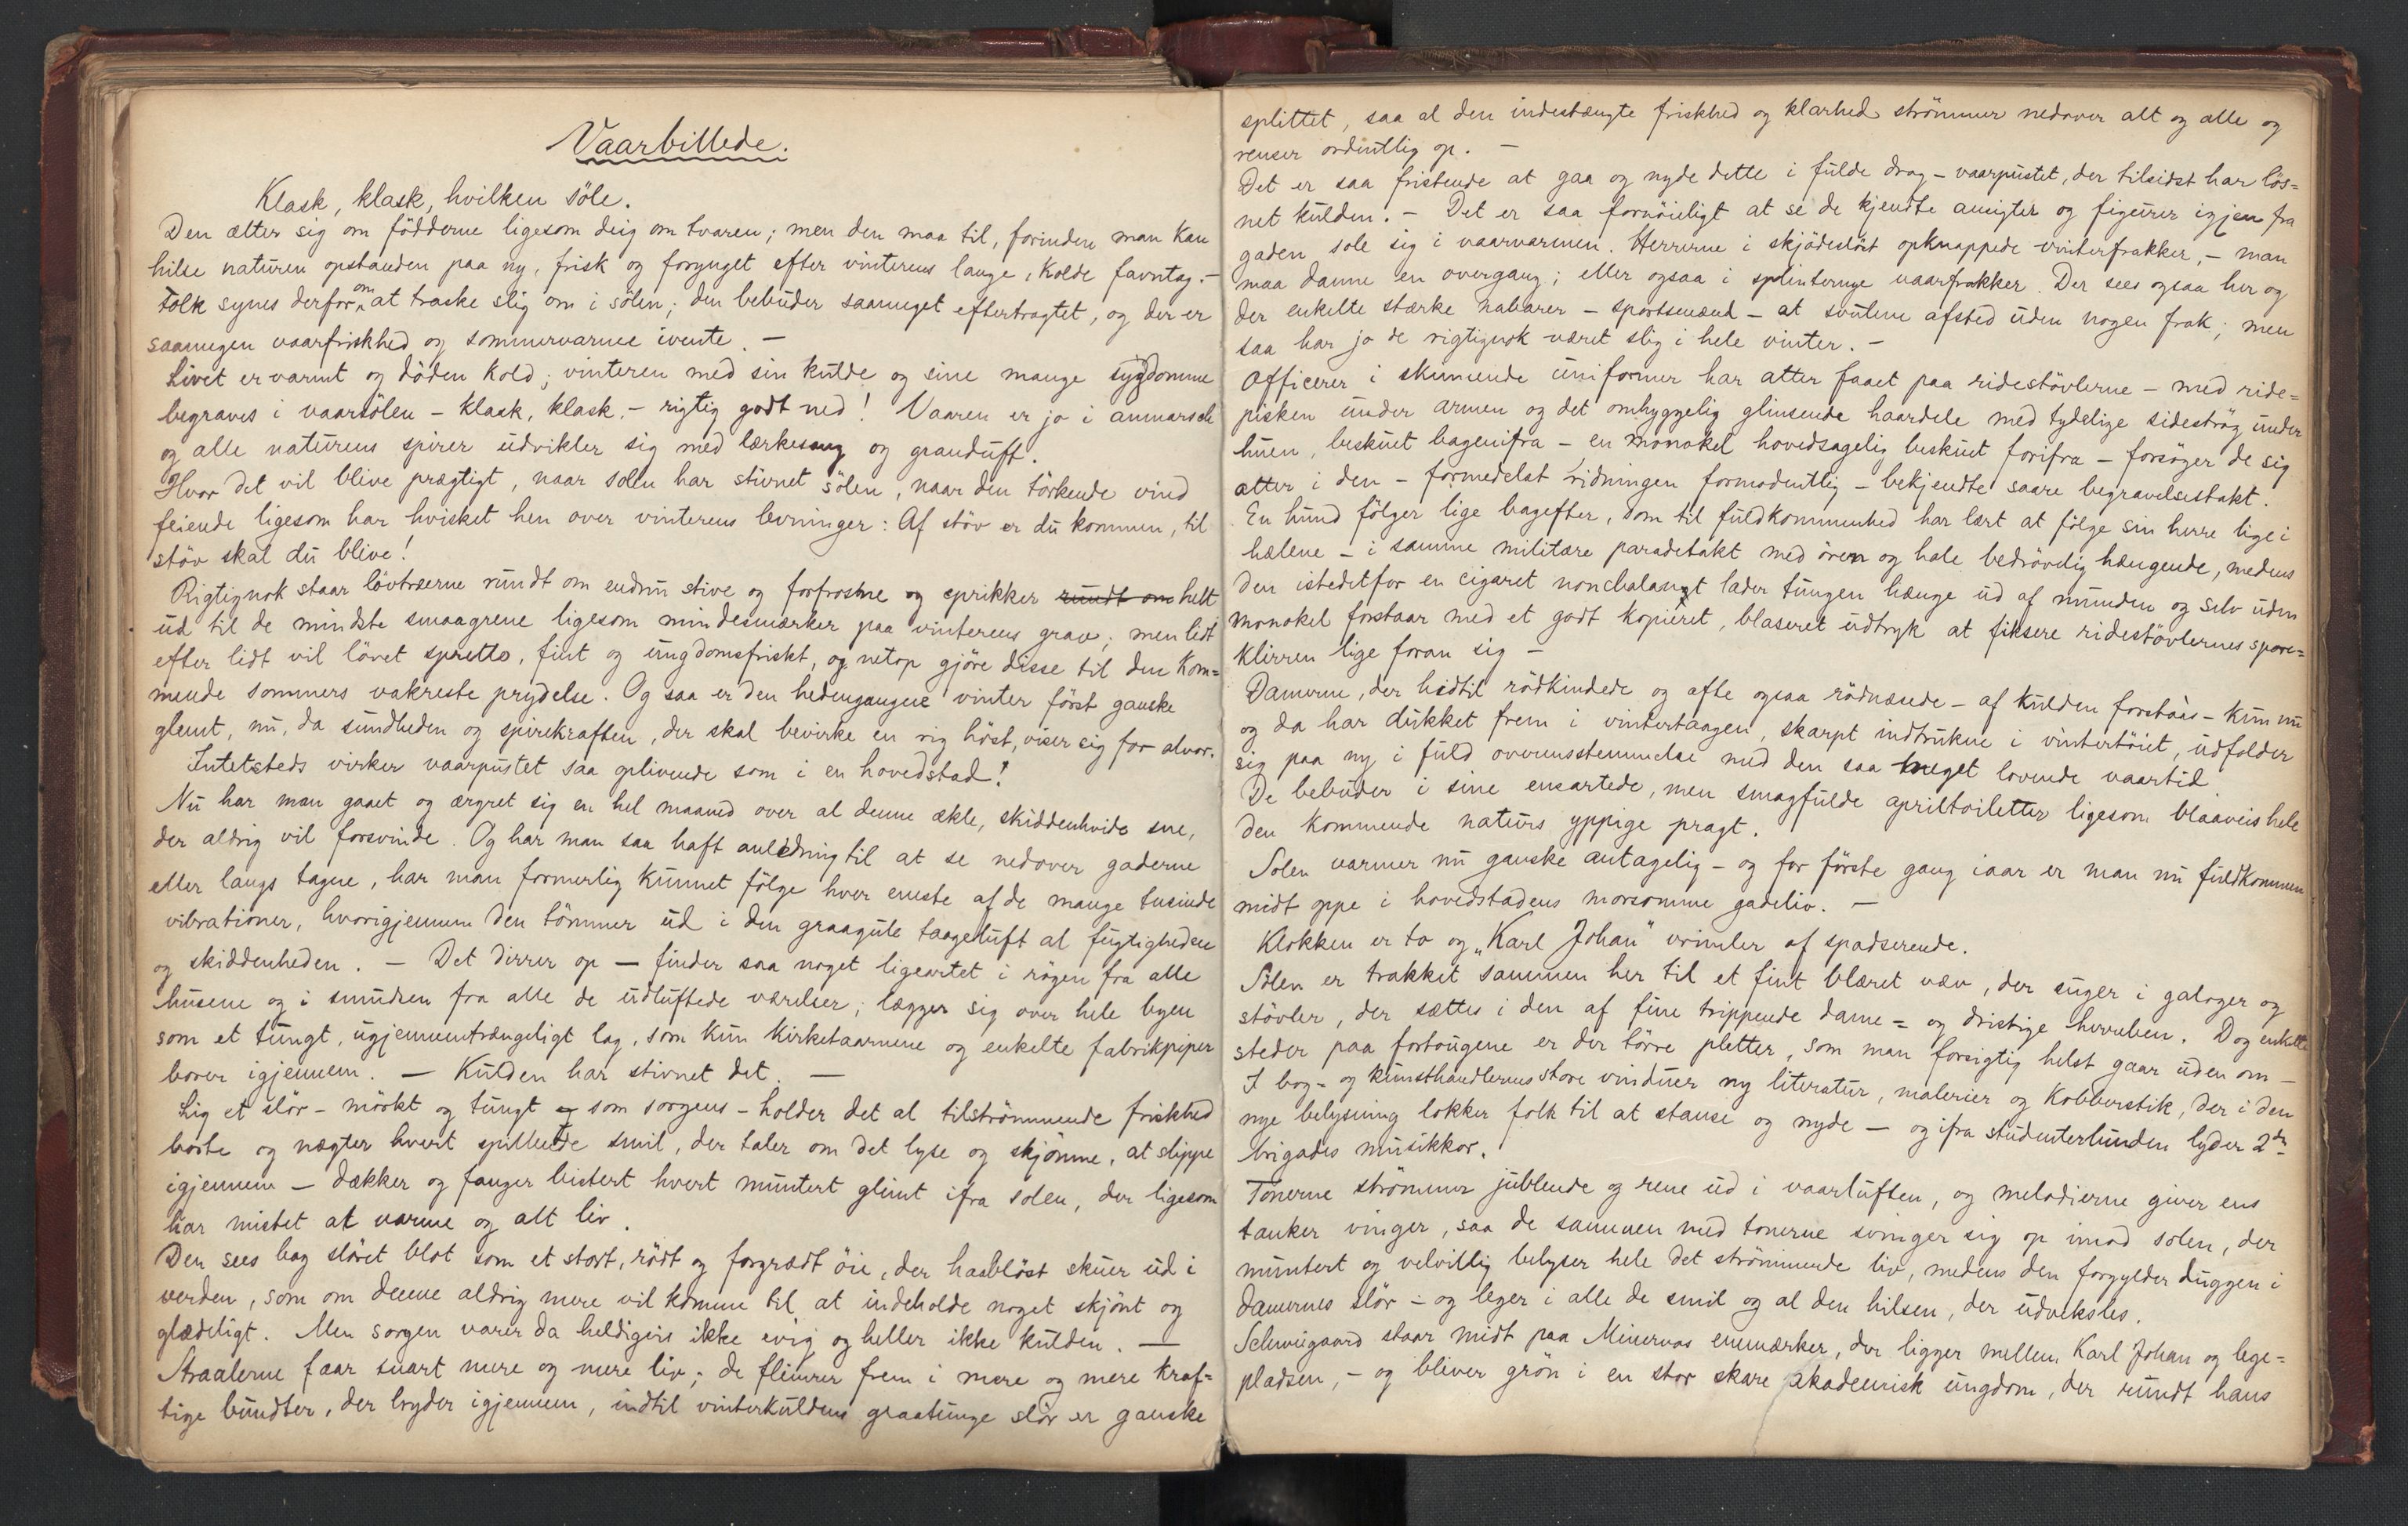 Vaarbillede.
Klask, klask, hvilken söle.
Den ætter sig om födderne ligesom deig om tvaren; men den maa til, forinden man kan
hilse naturen opstanden paa ny, frisk og forynget efter vinterens lange, kolde favntag. –
Folk synes derfor om at traske slig om i sölen; den bebuder saameget eftertragtet, og der er
saamegen vaarfriskhed og sommervarme ivente. –
Livet er varmt og döden kold; vinteren med sin kulde og sine mange sygdomme
begraves i vaarsölen – klask, klask, – rigtig godt ned! Vaaren er jo i anmarsch
og alle naturens spirer udvikler sig med lærkesang og granduft.
Hvor det vil blive prægtigt, naar solen har stivnet sölen, naar den törkende vind
feiende ligesom har hvisket hen over vinterens levninger: Af stöv er du kommen, til
stöv skal du blive!
Rigtignok staar lövtræerne rundt om endnu stive og forfrosne og sprikker rundt om helt
ud til de mindste smaagrene ligesom mindesmærker paa vinterens grav; men lidt
efter lidt vil lövet sprette, fint og ungdomsfriskt, og netop gjöre disse til den kom=
mende sommers vakreste prydelse. Og saa er den hedengangne vinter först ganske
glemt, nu, da sundheden og spirekraften, der skal bevirke en rig höst, viser sig for alvor.
Intetsteds virker vaarpustet saa oplivende som i en hovedstad!
Nu har man gaaet og ærgret sig en hel maaned over al denne ækle, skiddenhvide sne,
der aldrig vil forsvinde. Og har man saa haft anledning til at se nedover gaderne
eller langs tagene, har man formerlig kunnet fölge hver eneste af de mange tusinde
vibrationer, hvorigjennem den tömmer ud i den graagule taageluft al fugtigheden
og skiddenheden. – Det dirrer op – finder saa noget ligeartet i rögen fra alle
husene og i smudsen fra alle de udluftede værelser; lægger sig over hele byen
som et tungt, ugjennemtrængeligt lag, som kun kirketaarnene og enkelte fabrikpiper
borer igjennem. – Kulden har stivnet det. –
Lig et slör – mörkt og tungt som sorgens – holder det al tilströmmende friskhed
borte og nægter hvert spillende smil, der taler om det lyse og skjönne, at slippe
igjennem – dækker og fanger bistert hvert muntert glimt ifra solen, der ligesom
har mistet al varme og alt liv.
Den sees bag slöret blot som et stort, rödt og forgrædt öie, der haablöst skuer ud i
verden, som om denne aldrig mere vil komme til at indeholde noget skjönt og
glædeligt. Men sorgen varer da heldigvis ikke evig og heller ikke kulden. –
Straalerne faar snart mere og mere liv; de flimrer frem i mere og mere kraf=
tige bundter, der bryder igjennem, indtil vinterkuldens graatunge slör er ganske
splittet, saa al den indestængte friskhed og klarhed strömmer nedover alt og alle og
renser ordentlig op. –
Det er saa fristende at gaa og nyde dette i fulde drag – vaarpustet, der tilsidst har lös=
net kulden. – Det er saa fornöieligt at se de kjendte ansigter og figurer igjen fra
gaden sole sig i vaarvarmen. Herrerne i skjödeslöst opknappede vinterfrakker, – man
maa danne en overgang; eller ogsaa i splinternye vaarfrakker. Der sees ogsaa her og
der enkelte stærke nabarer – sportsmænd – at snutene afsted uden nogen frak; men
saa har jo de rigtignok været slig i hele vinter. –
Officerer i skinnende uniformer har atter faaet paa ridestövlerne – med ride=
pisken under armen og det omhyggelig glinsende haardele med tydelige sideströg under
huen, beskuet bagenifra – en monokel hovedsagelig beskuet forifra – forsöger de sig
atter i den – formedelst ridningen formodentlig – bekjendte saare begravelsestakt.
En hund fölger lige bagefter, som til fuldkommenhed har lært at fölge sin herre lige i
hælene – i samme militære paradetakt med ören og hale bedrövelig hængende, medens
den istedetfor en cigaret nonchalangt lader tungen hænge ud af munden og selv uden
monokel forstaar med et godt kopieret, blaseret udtryk at fiksere ridestövlernes spore=
klirren lige foran sig –
Damerne, der hidtil rödkindede og ofte ogsaa rödnæsede – af kulden forstaas – kun nu
og da har dukket frem i vintertaagen, skarpt indtrukne i vintertöiet, udfolder
sig paa ny i fuld overensstemmelse med den saa meget lovende vaartid
De bebuder i sine ensartede, men smagfulde apriltoiletter ligesom blaaveis hele
den kommende naturs yppige pragt.
Solen varmer nu ganske antagelig – og for förste gang iaar er man nu fuldkommen
midt oppe i hovedstadens morsomme gadeliv. –
Klokken er to og „Karl Johan" vrimler af spadserende.
Sölen er trakket sammen her til et fint blæret væv, der suger i galoger og
stövler, der sættes i den af fine trippende dame= og dristige herreben. Dog enkelte
steder paa fortougene er der törre pletter, som man forsigtig helst gaar uden om –
I bog= og kunsthandlernes store vinduer ny literatur, malerier og kobberstik, der i den
nye belysning lokker folk til at stanse og nyde – og ifra studenterlunden lyder 2den
brigades musikkor.
Tonerne strömmer jublende og rene ud i vaarluften, og melodierne giver ens
tanker vinger, saa de sammen med tonerne svinger sig op imod solen, der
muntert og velvillig belyser hele det strömmende liv, medens den forgylder duggen i
damernes slör – og leger i alle de smil og al den hilsen, der udveksles.
Schweigaard staar midt paa Minervas enemærker, der ligger mellem Karl Johan og lege=
pladsen, – og bliver grön i en stor skare akademisk ungdom, der rundt hans